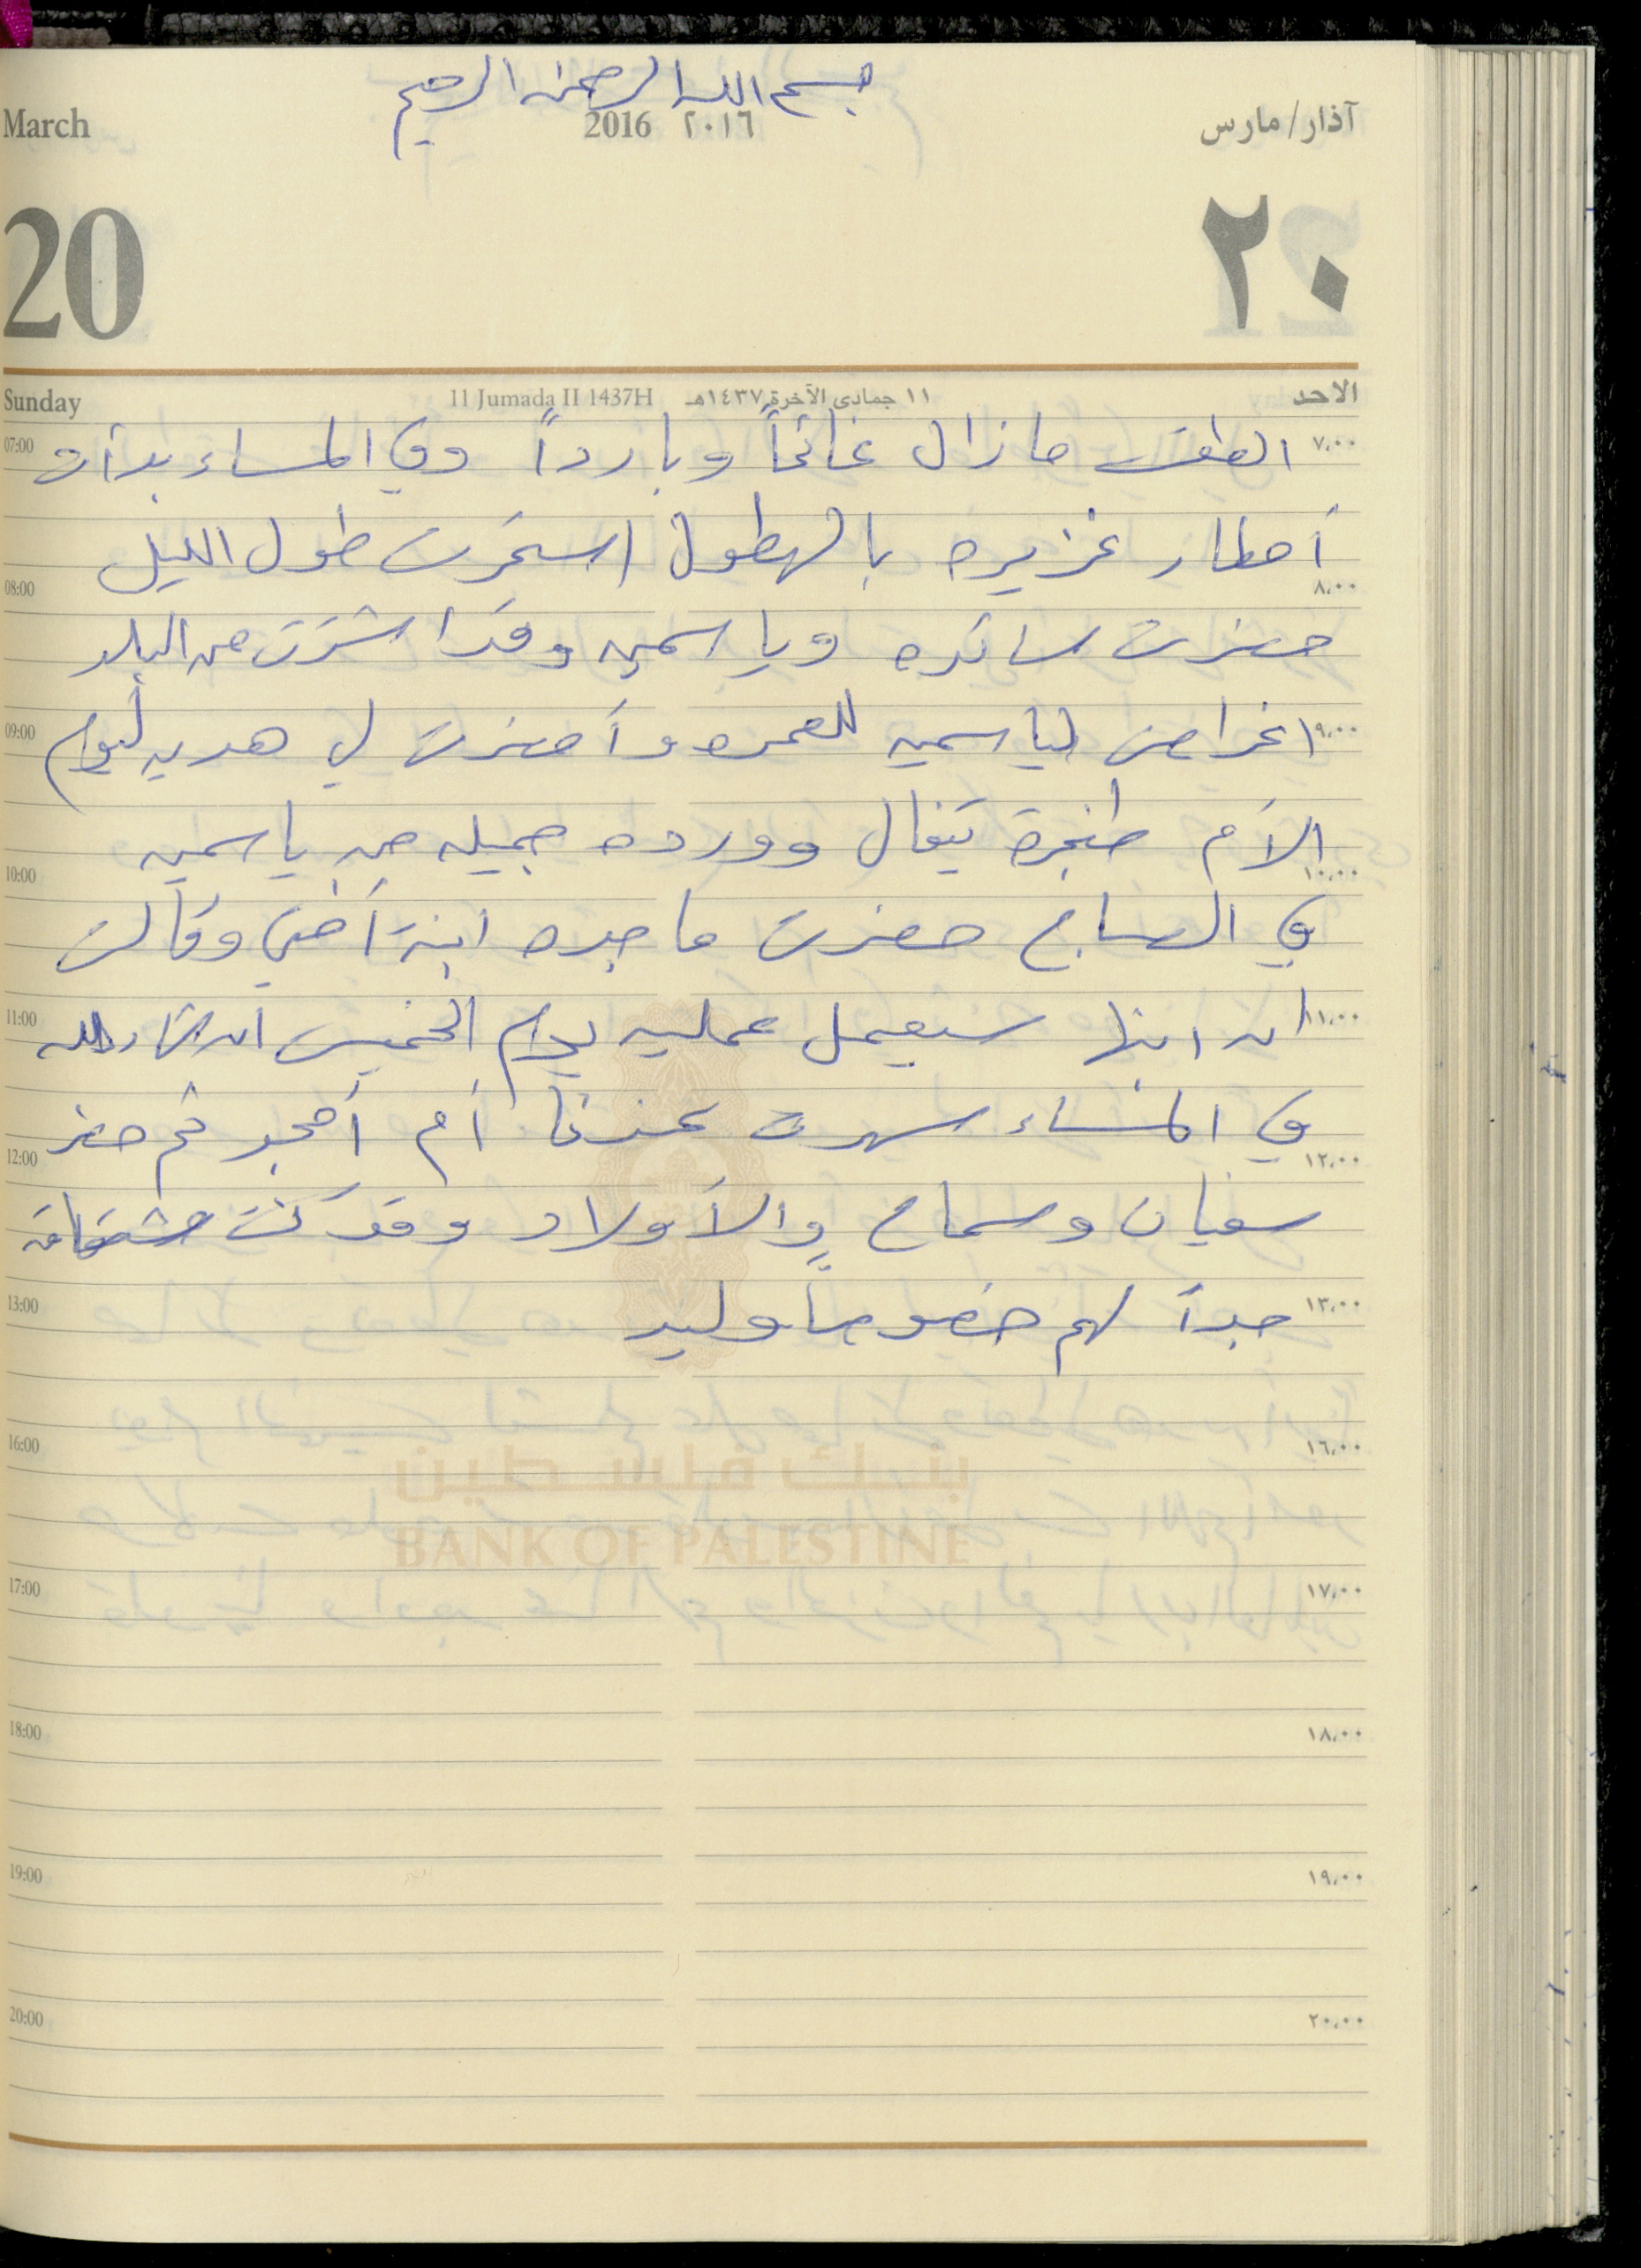 بسم الله الرحمن الرحيم
March 2016 ٢٠١٦ آذار/مارس
20 ٢٠
Sunday 11 Jumada II 1437H ١١ جمادى الآخرة ١٤٣٧هـ الاحد
07:00 الطقس مازال غائماً وبارداً وفي المساء بدأت ٧،٠٠
أمطار غزيره بالهطول استمرت طول الليل
08:00 ٨،٠٠
حضرت سائده وياسمين وقد اشترت من البلد
09:00 اغراض لياسمين للعمره وأحضرت لي هديه ليوم ٩،٠٠
الأم طنجرة تيفال وورده جميله من ياسمين
10:00 ١٠،٠٠
في الصباح حضرت ماجده ابنة أختي وقالت
11:00 ان ابنها سيعمل عمليه يوم الخميس ان شاء الله ١١،٠٠
في المساء سهرت عندنا أم أمجد ثم حضر
12:00 ١٢،٠٠
سفيان وسماح والأولاد وقد كنت مشتاقه
13:00 جداً لهم خصوصاً وليد ١٣،٠٠
16:00 ١٦،٠٠
بنك فلسطين
BANK OF PALESTINE
17:00 ١٧،٠٠
18:00 ١٨،٠٠
19:00 ١٩،٠٠
20:00 ٢٠،٠٠